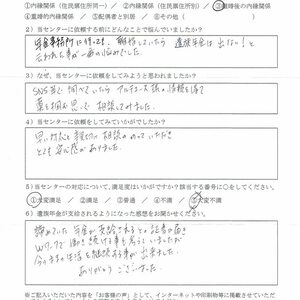 ①内縁関係（住民票住所同一） ②内縁関係（住民票住所別） ③重婚後の内縁関係
④内縁関係 ⑤配偶者と別居 ⑥その他（　　　）
2）当センターに依頼する前にどんなことで悩んでいましたか？
年金事務所に行ったとき、
遺族年金は出ない！と
言われた事が一番の悩みでした。
3）なぜ、当センターに依頼をしてみようと思われましたか？
SNS等で調べていたら
相談してみました。
4）当センターに依頼をしてみていかがでしたか？
早い対応と親切に相談にのっていただき
とても安心感がありました。
5）当センターの対応について、満足度はいかがですか？該当する番号に○をしてください。
①大変満足 ／ ②満足 ／ ③普通 ／ ④不満 ／ ⑤大変不満
6）遺族年金が支給されるようになった感想をお聞かせください。
諦めていた年金が支給されるとの記書が届き
Wワークで働き続ける事も考えていましたが
今のままの生活を継続する事が出来ました。
ありがとうございました。
※ご記入いただいた内容を「お客様の声」として、インターネットや印刷物等に掲載させていただ